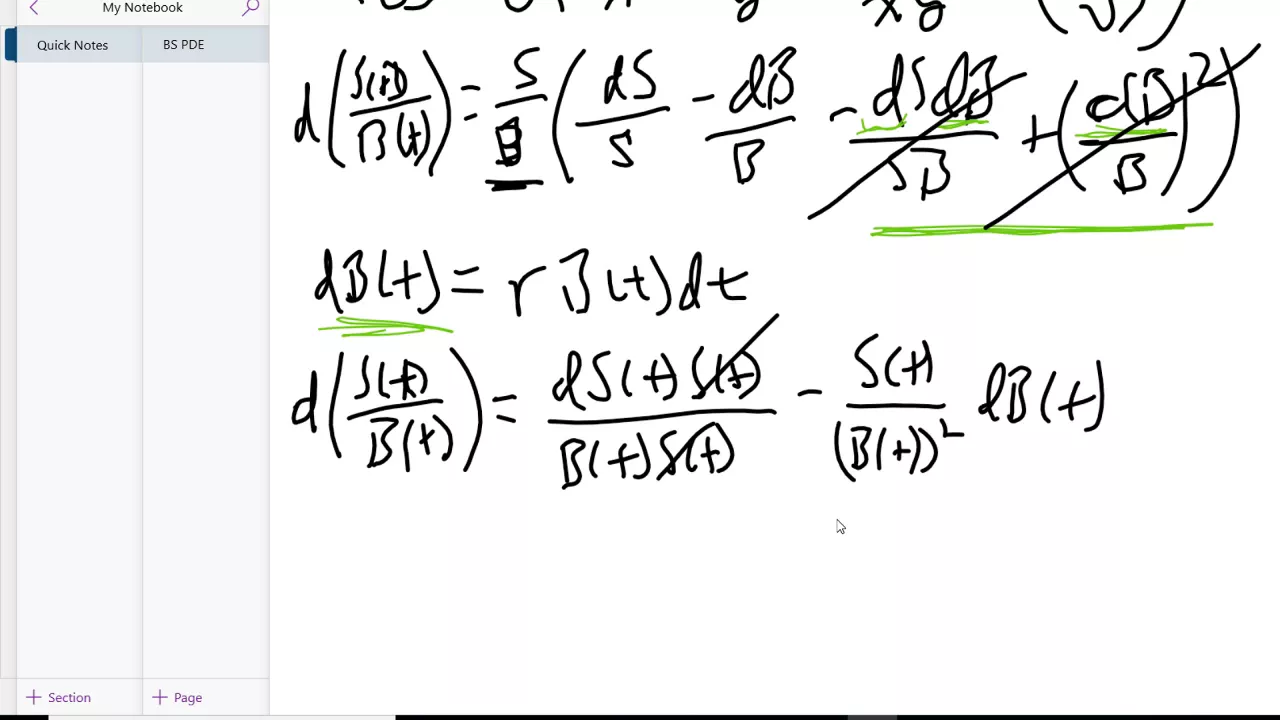 My Notebook
Quick Notes
BS PDE
d(S(t)/B(t)) = S/B (dS/S - dB/B - dSdB/SB + (dB/B)²)
dB(t) = r B(t) dt
d(S(t)/B(t)) = dS(t) S(t)/B(t) S(t) - S(t)/(B(t))² dB(t)
+ Section
+ Page